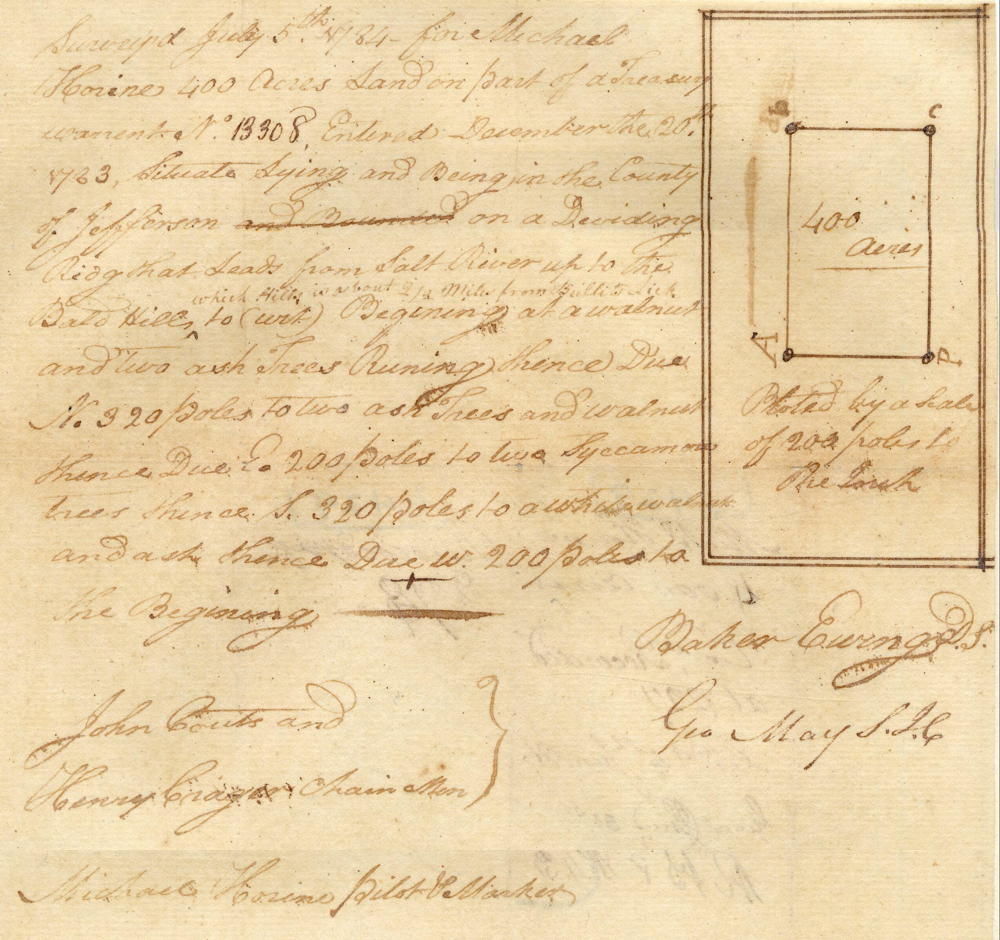 Surveyd July 5th 1784 for Michael
Horine 400 Acres Land on part of a Treasury
warrent No. 13308, Entered December the 20th
1783, Situate Lying and Being in the County
of Jefferson and Bounded on a Deviding
Ridg that Leads from Salt River up to the
which Hills is about 2 1/2 Miles from Bullits Lick
Bald Hills, to (wit) Begining at a walnut
and two ash Trees Runing thence Due
N. 320 poles to two ash Trees and walnut
thence Due E. 200 poles to two Syccamore
trees thence S. 320 poles to a white walnut
and ash thence Due W. 200 poles to
the Begining
b
C
400
Acres
A
D
Ploted by a Scale
of 200 poles to
the Inch
Baker Ewing D.S.
Geo May S.J.C
John Couts and
Henry Crager Chain Men
Michael Horine pilot & Marker